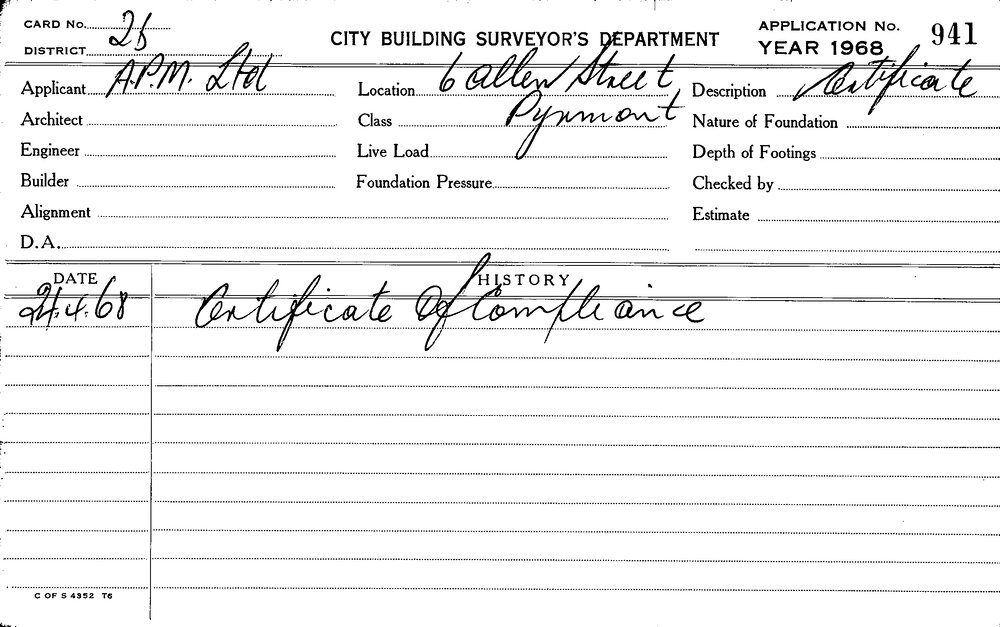 CARD No. 2b
CITY BUILDING SURVEYOR'S DEPARTMENT
APPLICATION No. 941
DISTRICT
YEAR 1968
Applicant A.P.M. Ltd
Location 6 Allen Street
Description Certificate
Architect
Class Pyrmont
Nature of Foundation
Engineer
Live Load
Depth of Footings
Builder
Foundation Pressure
Checked by
Alignment
Estimate
D.A.
DATE
HISTORY
24.4.68 Certificate Of Compliance
C OF S 4352 T6